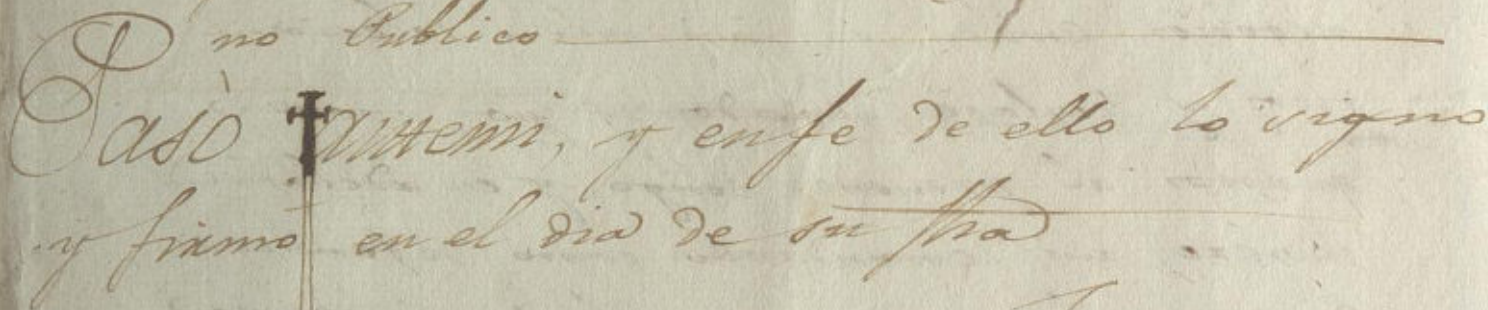 no Publico
Pasò antemi, y en fe de ello lo signo
y firmo en el dia de su fha